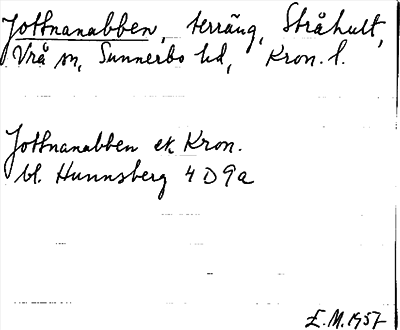 Jottnanabben, terräng, Stråhult,
Vrå sn, Sunnerbo hd, Kron. l.
Jottnanabben ek Kron.
bl. Hunnsberg 4 D 9a
E.M. 1957